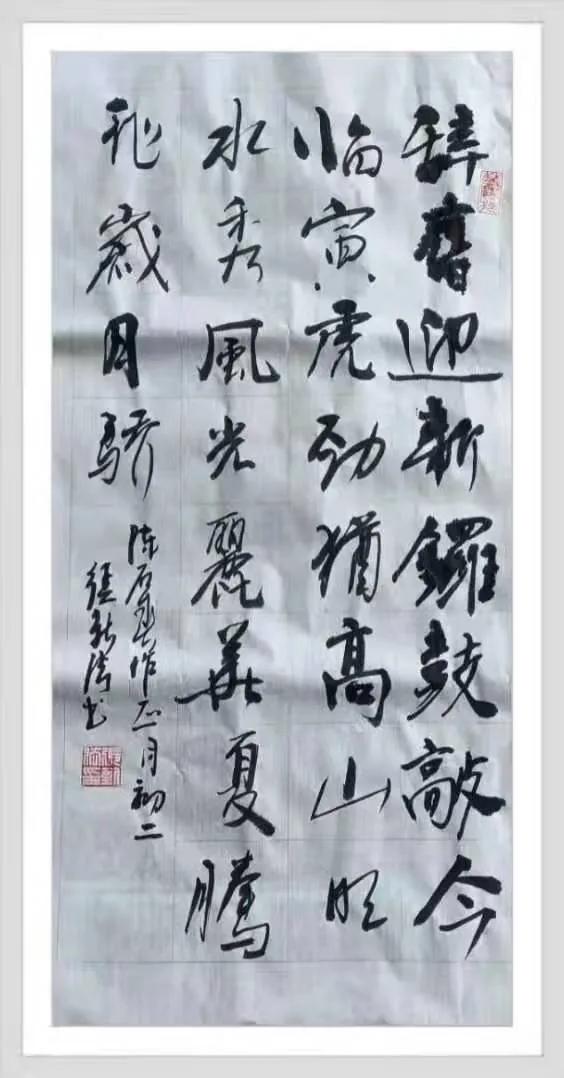 辞舊迎新鑼鼓敲今
临寅虎劲猶高山明
水秀風光麗華夏騰
飛歲月驕
陈石作正月初二
张新清书